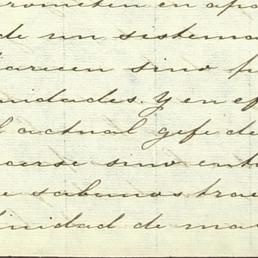 rometen en apo
de un sistema
carecen sino p
nidades. Y en ef
l actual gefe de
sino ent
e sabemos trae
inidad de ma